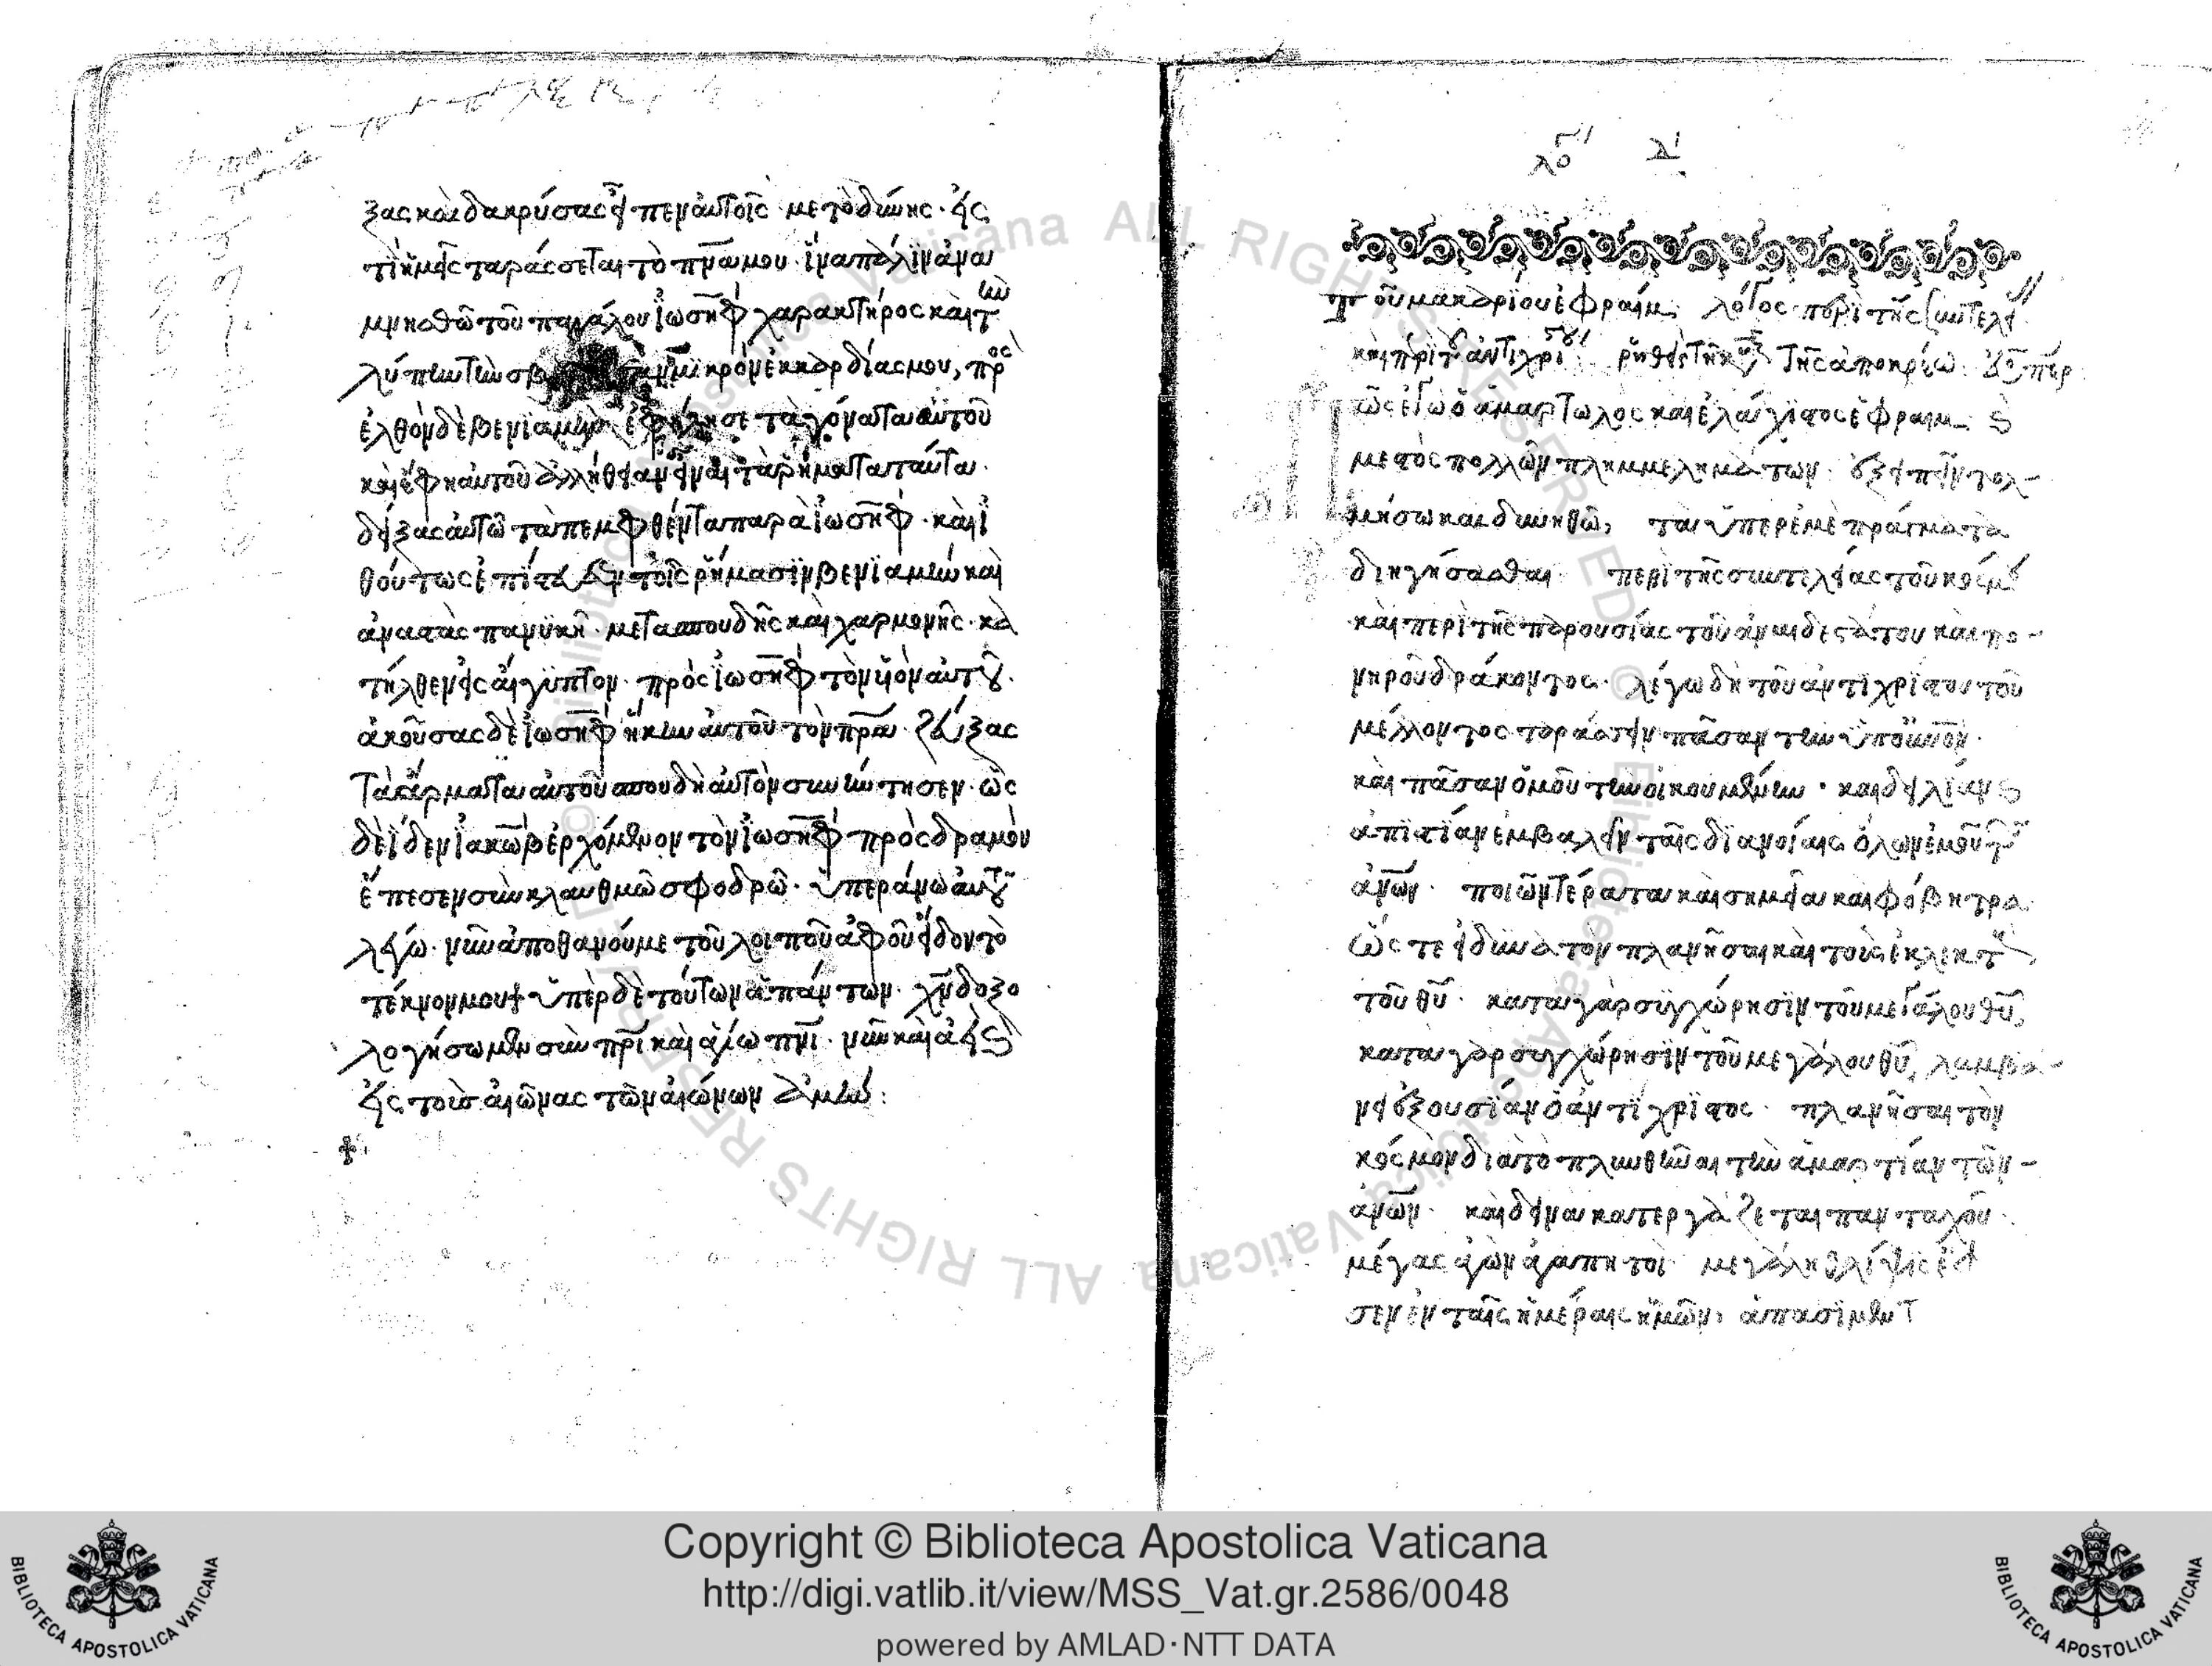 ξας καὶ δακρύσας εἶπεν αὐτοῖς μετ ὀδύνης· εἰς
τί ἡμεῖς ταράσσεται τὸ πνᾶ μου· ἵνα πάλιν ἀνα
μνησθῶ τοῦ παγκάλου ἰωσὴφ χαρακτήρος καὶ τὴν
λύπην τὴν μικρὸν ἐκ καρδίας μου, πρὸς
ἐλθὸν δὲ βενϊαμὴν ἐφίλησε τὰ γόνατα αὐτοῦ
καὶ ἔφη αὐτοῦ ἀληθειαν εἶναι τὰ ῥήματα ταῦτα·
δείξας αὐτῶ τὰ πεμφθέντα παρὰ ἰωσὴφ· καὶ εἶ
θούτως ἐπίστευσεν τοῖς ρήμασϊν βενϊαμὴν καὶ
ἀναστὰς πανϋκῆ· μετα σπουδῆς καὶ χαρμονῆς· κα
τήλθεν εἰς αἴγϋπτον· πρὸς ἰωσὴφ τὸν υἱὸν αὐτοῦ·
ἀκοῦσας δὲ ἰωσὴφ ἥκειν αὐτοῦ τὸν πρᾶ· ζεύξας
Τὰ ἅρματα αὐτοῦ σπουδῆ αὐτὸν συνήντησεν· ὡς
δὲ ἴδεν ἰακὼβ ἐρχόμενον τὸν ἰωσὴφ πρὸςδραμὸν
ἔπεσεν σὺν κλαυθμῶ σφοδρῶ· ὑπεράνω αὐτοῦ
λέγω· νῦν ἀποθανούμε τοῦ λοιποῦ ἀφοῦ εἶδον τὸ
τέκνον μου ὑπὲρ δὲ τούτων ἁπάντων· χν δοξο
λογήσωμεν σὺν πρι καὶ ἁγίω πνι· νῦν καὶ ἀεὶ καὶ
εἰς τοὺς ἀιῶνας τῶν ἀιώνων ἀμήν:
λογ δ
τοῦ μακαρίου ἐφραίμ· λόγος περὶ τῆς συντελεί
καὶ περὶ τοῦ ἀντιχρί ρηθεὶς τῆς ἀποκρέω
πῶς ἐγὼ ὁ ἁμαρτωλος καὶ ἐλάχϊστος ἐφραιμ καὶ
μεστὸς πολλῶν πλημμελημάτων· ἐξειπεῖν τολ-
μήσω καὶ δυνηθῶ, τὰ ὑπερ ἐμὲ πράγματα
διηγήσασθαι περὶ τῆς συντελείας τοῦ κόσμου
καὶ περὶ τῆς παρουσίας τοῦ ἀναιδεστάτου καὶ πο-
νηροῦ δράκοντος· λέγω δὴ τοῦ ἀντϊχρίστου τοῦ
μέλλοντος ταράσσειν πᾶσαν τὴν ὑπ οὐνον·
καὶ πᾶσαν ὁμοῦ τὴν οἰκουμένην· καὶ δειλίαν καὶ
ἀπϊστίαν ἐμβαλεῖν ταῖς δϊανοίαις ὅλων ἐμοῦ τῶν
ἀνῶν· ποιῶν τέρατα καὶ σημεῖα καὶ φόβητρα
ὥς τε εἰ δυνατὸν πλανῆσαι καὶ τοὺς ἐκλεκτοὺς
τοῦ θῦ· κατα γὰρ συγχώρησϊν τοῦ μεγάλου θῦ,
κατα γὰρ συγχώρησϊν τοῦ μεγάλου θῦ, λαμβα-
νει ἐξουσίαν ὁ ἀντϊχρϊστος· πλανῆσαι τὸν
κόσμὸν διὰ τὸ πληθῦναι τὴν ἁμαρτίαν τῶν-
ἀνῶν· καὶ δεινα κατεργάζεται πανταχοῦ·
μέγας ἀγὼν ἀγαπητοὶ μεγάλη θλίψις ἔφθα
σεν ἐν ταῖς ἡμέραις ἡμῶν,
Copyright © Biblioteca Apostolica Vaticana
http://digi.vatlib.it/view/MSS_Vat.gr.2586/0048
powered by AMLAD·NTT DATA
BIBLIOTECA APOSTOLICA VATICANA
BIBLIOTECA APOSTOLICA VATICANA